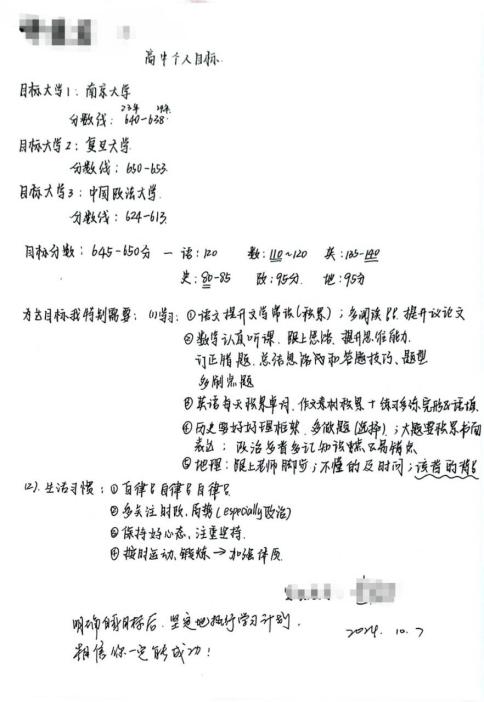 高中个人目标
目标大学1：南京大学
23年 24年
分数线：640-638
目标大学2：复旦大学
分数线：650-653
目标大学3：中国政法大学
分数线：624-613
目标分数：645-650分 — 语：120 数：110~120 英：135-140
史：80-85 政：95分 地：95分
为达目标我特别需要：(1)学习：①语文提升文学常识(积累)；多阅读 提升议论文
②数学认真听课，跟上思路，提升思维能力
订正错题，总结思路 和答题技巧、题型
多刷完题
③英语每天积累单词，作文素材积累+练习多练完形及语填
④历史要好好理框架，多做题(选择)；大题要积累书面
表达；政治多看多记知识 易错点
⑤地理：跟上老师脚步；不懂的及时问；该背的背
(2).生活习惯：①自律 自律 自律
②多关注时政，局势(especially政治)
③保持好心态，注重坚持
④按时运动、锻炼→加强体质
明确自己目标后，坚定地执行学习计划，
2024.10.7
相信你一定能成功！